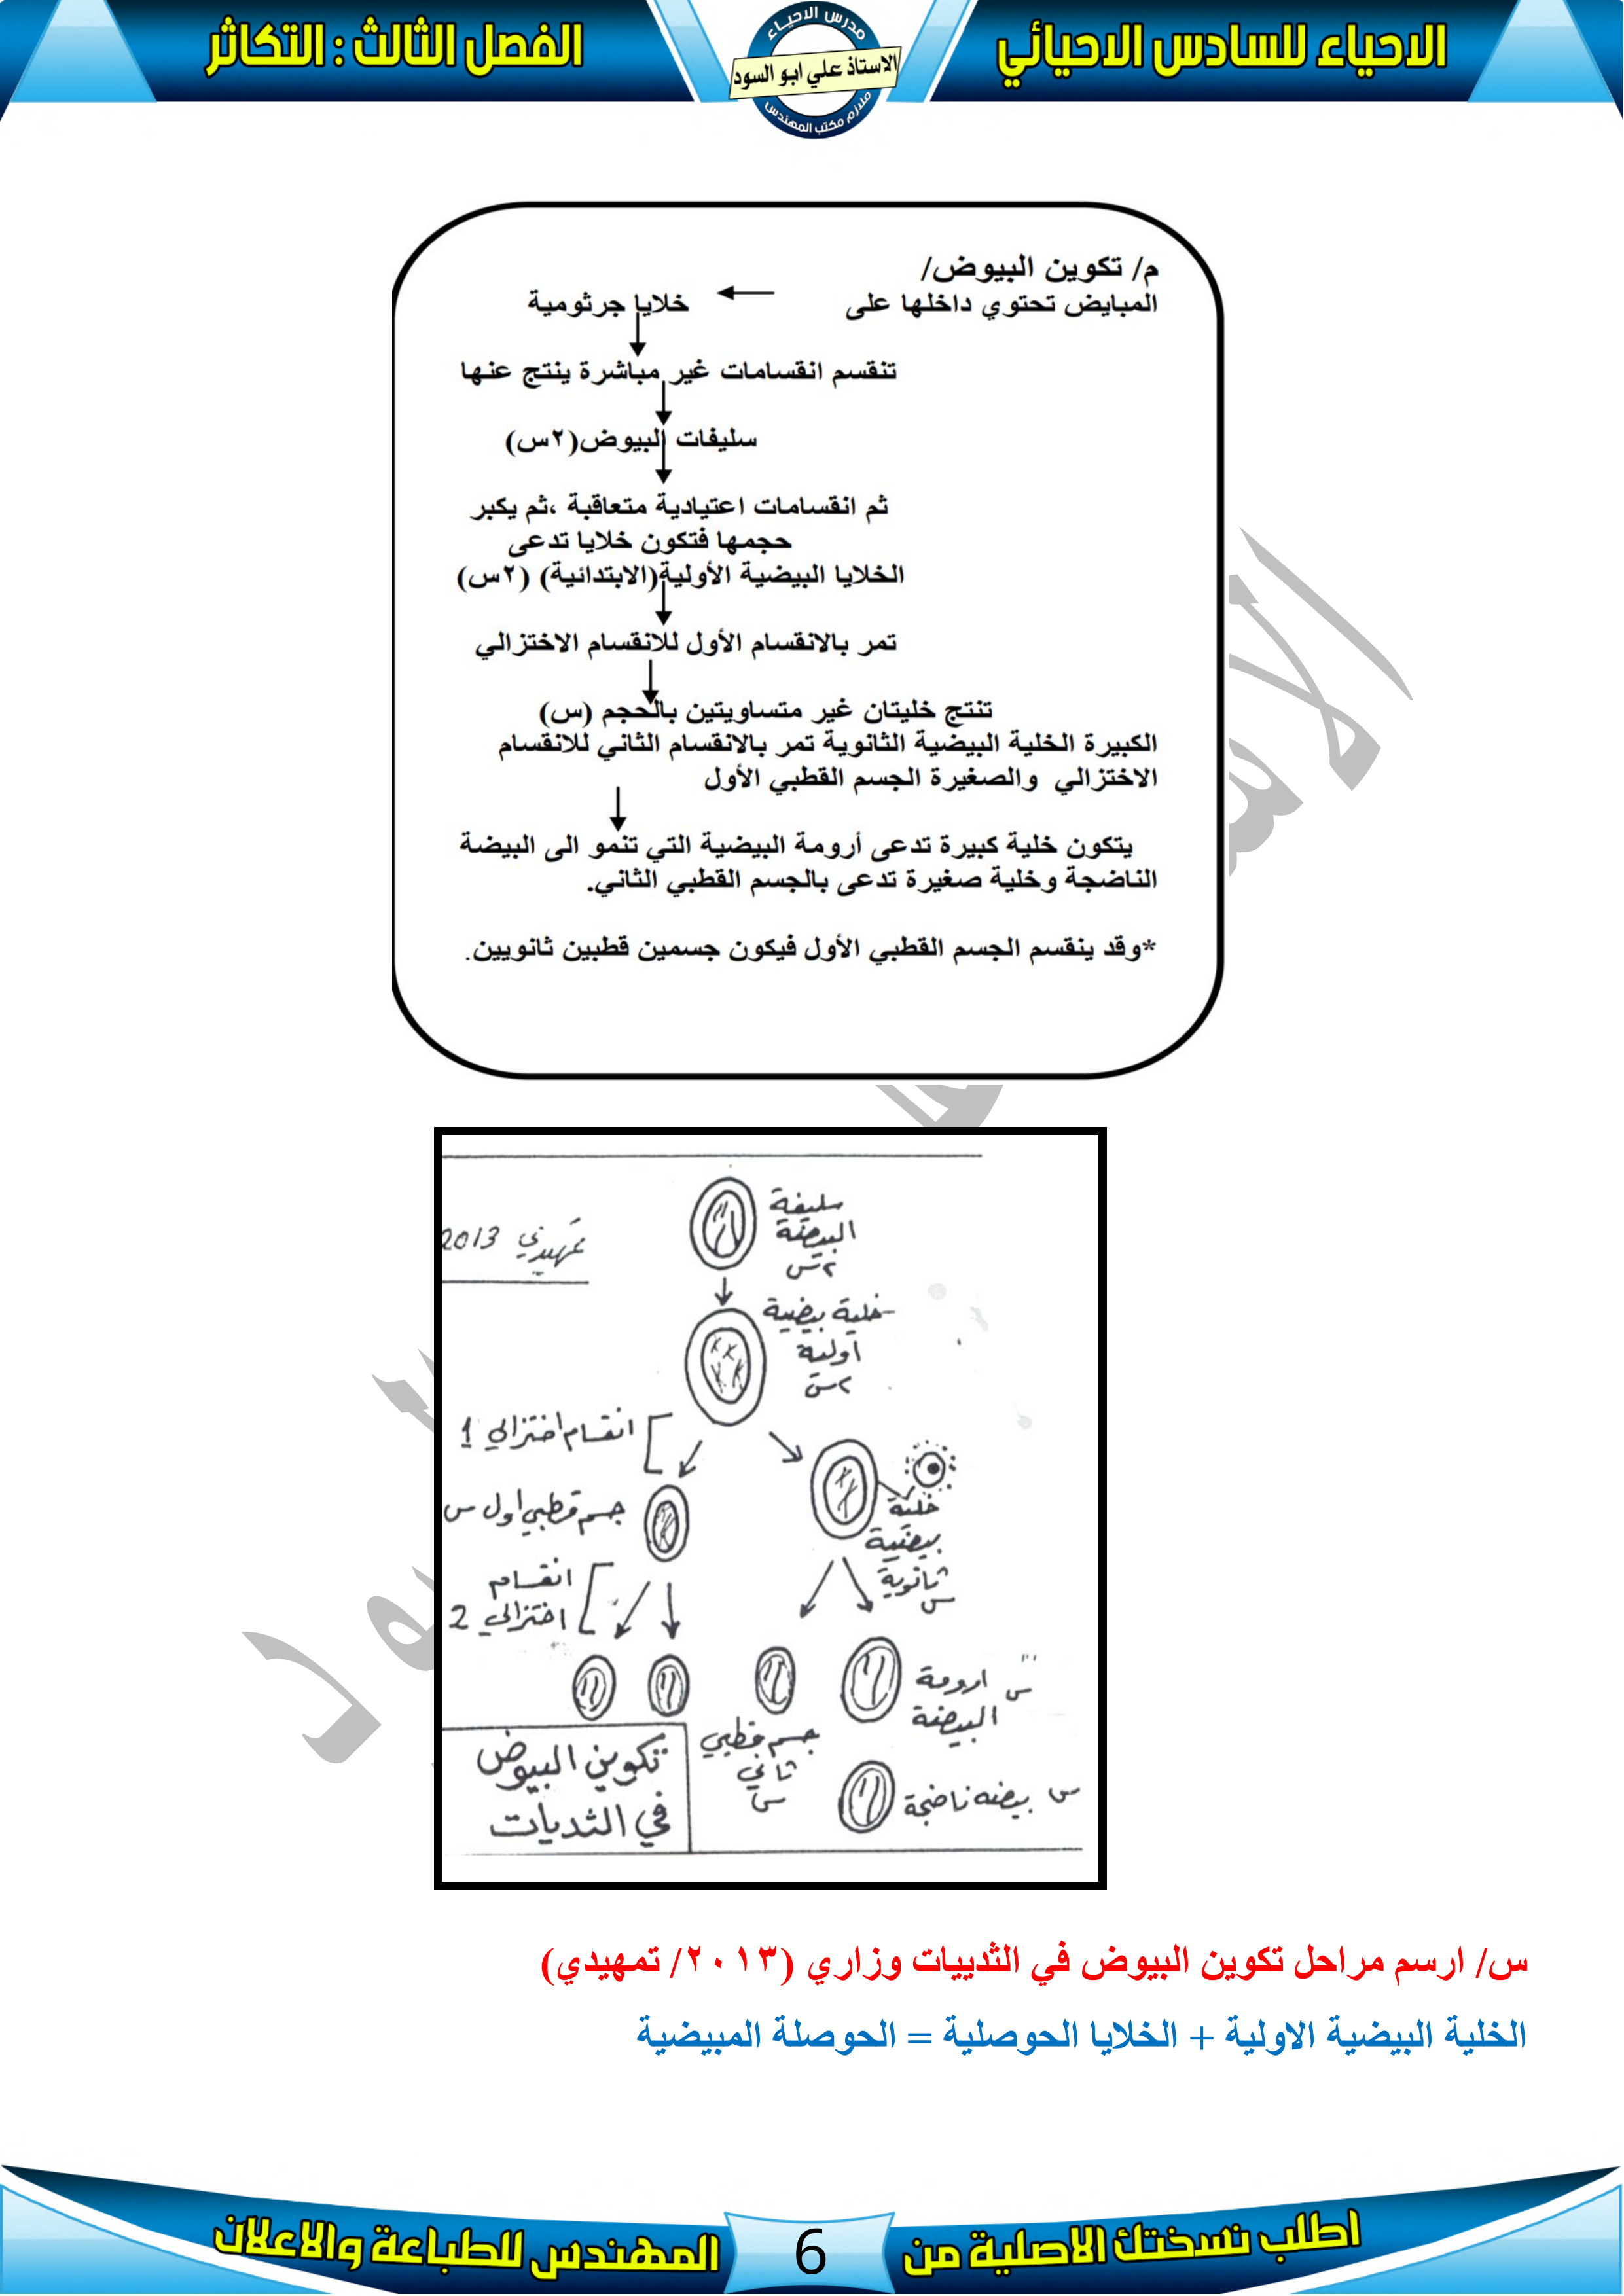 الاحياء للسادس الاحيائي
مدرس الاحياء
الاستاذ علي ابو السود
ملازم مكتب المهندس
الفصل الثالث : التكاثر
م/ تكوين البيوض/
المبايض تحتوي داخلها على ← خلايا جرثومية
تنقسم انقسامات غير مباشرة ينتج عنها
سليفات البيوض(٢س)
ثم انقسامات اعتيادية متعاقبة ،ثم يكبر
حجمها فتكون خلايا تدعى
الخلايا البيضية الأولية(الابتدائية) (٢س)
تمر بالانقسام الأول للانقسام الاختزالي
تنتج خليتان غير متساويتين بالحجم (س)
الكبيرة الخلية البيضية الثانوية تمر بالانقسام الثاني للانقسام
الاختزالي والصغيرة الجسم القطبي الأول
يتكون خلية كبيرة تدعى أرومة البيضية التي تنمو الى البيضة
الناضجة وخلية صغيرة تدعى بالجسم القطبي الثاني.
*وقد ينقسم الجسم القطبي الأول فيكون جسمين قطبين ثانويين.
سليفة
البيضة
٢س
تمهيدي 2013
خلية بيضية
اولية
٢س
انقسام اختزالي 1
خلية
بيضية
ثانوية
س
جسم قطبي اول س
انقسام
اختزالي 2
ارومة س
البيضة
جسم قطبي
ثاني
س
بيضه ناضجة س
تكوين البيوض
في الثديات
س/ ارسم مراحل تكوين البيوض في الثدييات وزاري (٢٠١٣/ تمهيدي)
الخلية البيضية الاولية + الخلايا الحوصلية = الحوصلة المبيضية
اطلب نسختك الاصلية من
6
المهندس للطباعة والاعلان